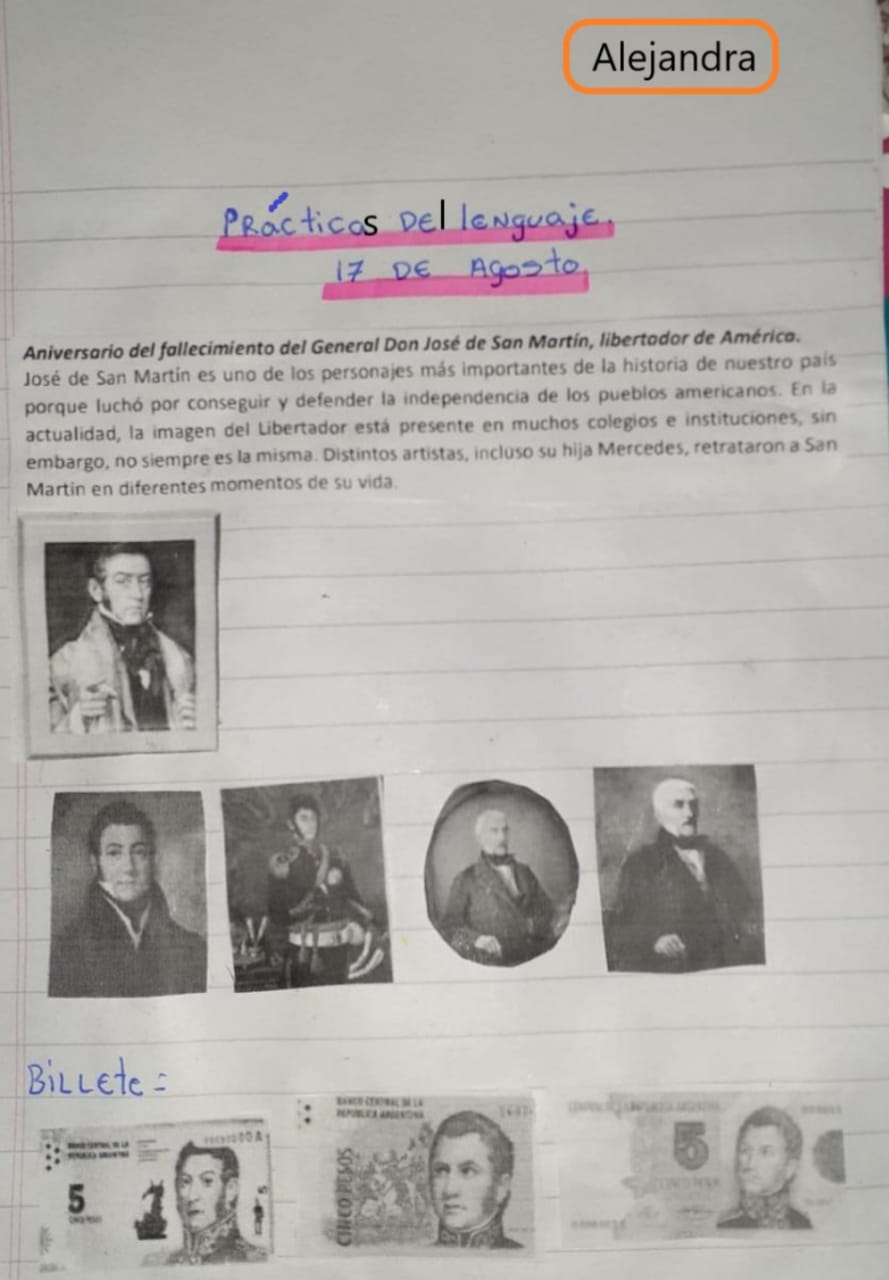 Alejandra
Prácticas Del lenguaje.
17 DE Agosto.
Aniversario del fallecimiento del General Don José de San Martín, libertador de América.
José de San Martín es uno de los personajes más importantes de la historia de nuestro país
porque luchó por conseguir y defender la independencia de los pueblos americanos. En la
actualidad, la imagen del Libertador está presente en muchos colegios e instituciones, sin
embargo, no siempre es la misma. Distintos artistas, incluso su hija Mercedes, retrataron a San
Martin en diferentes momentos de su vida.
BiLLete =
BANCO CENTRAL DE LA
REPUBLICA ARGENTINA
5
BANCO CENTRAL DE LA
REPUBLICA ARGENTINA
CINCO PESOS
5